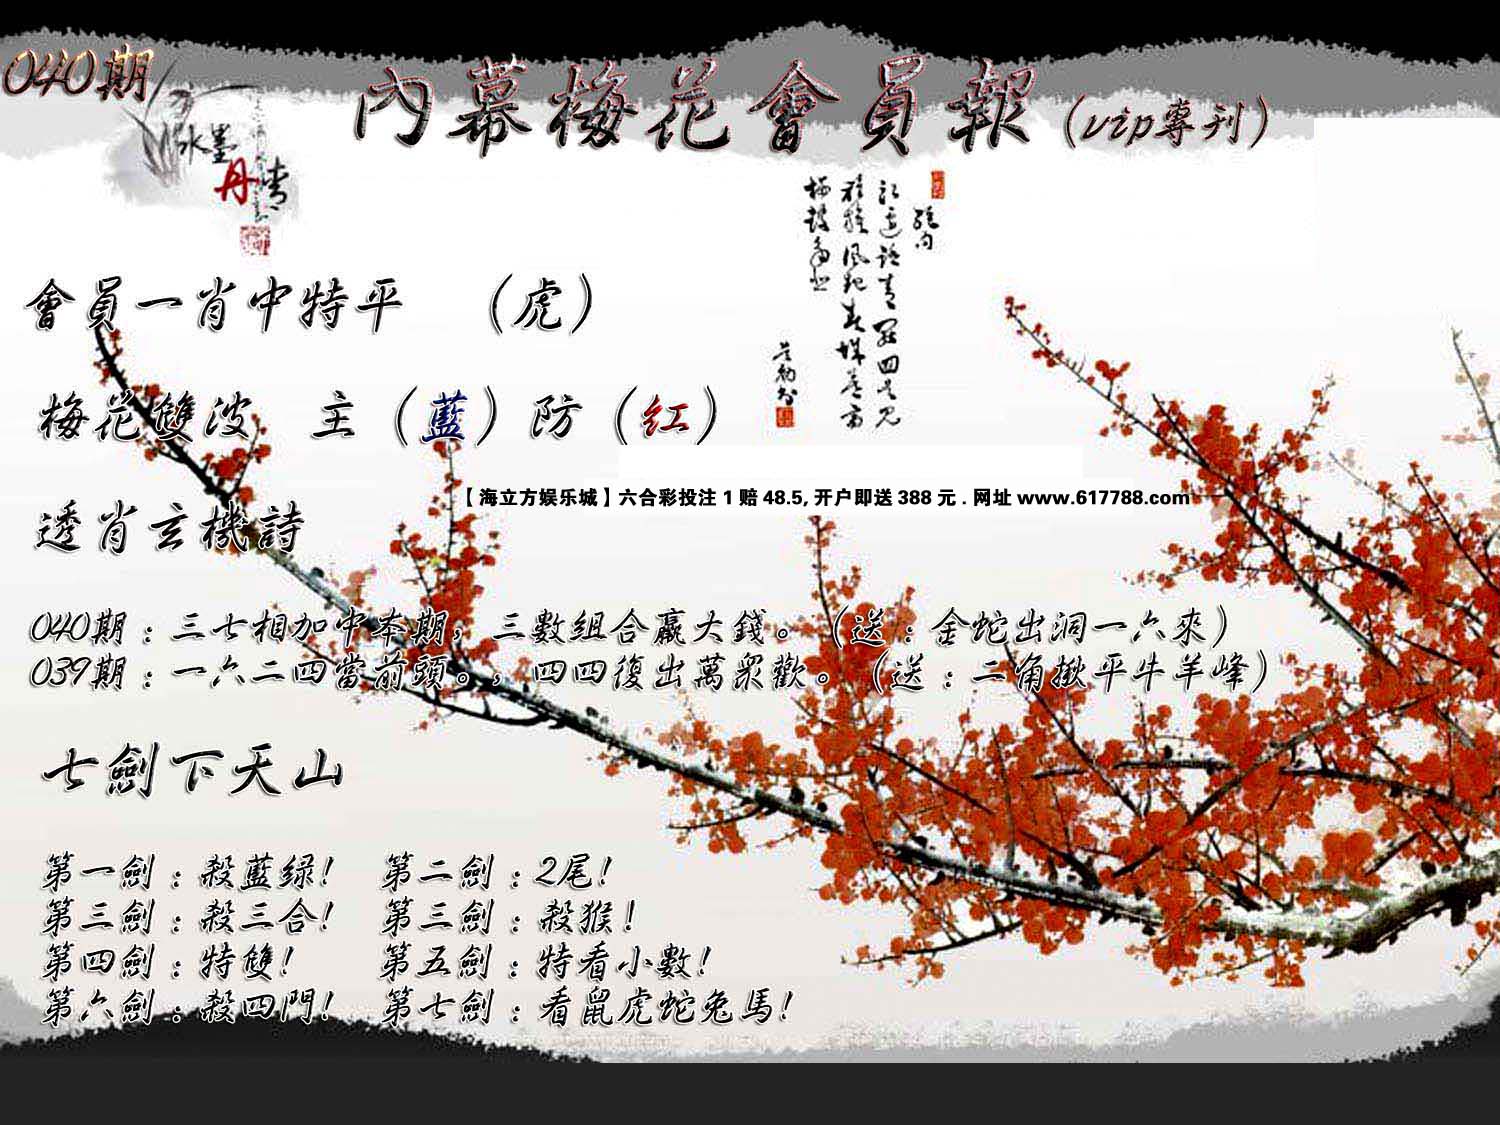 040期
內幕梅花會員報(vip專刊)
水墨
丹青
絕句
會員一肖中特平 (虎)
梅花雙波 主(藍)防(紅)
【海立方娱乐城】六合彩投注1赔48.5,开户即送388元.网址www.617788.com
透肖玄機詩
040期:三七相加中本期,三數組合贏大錢。(送:金蛇出洞一六來)
039期:一六二四當前頭。,四四復出萬衆歡。(送:二角揪平牛羊峰)
七劍下天山
第一劍:殺藍绿! 第二劍:2尾!
第三劍:殺三合! 第三劍:殺猴!
第四劍:特雙! 第五劍:特看小數!
第六劍:殺四門! 第七劍:看鼠虎蛇兔馬!